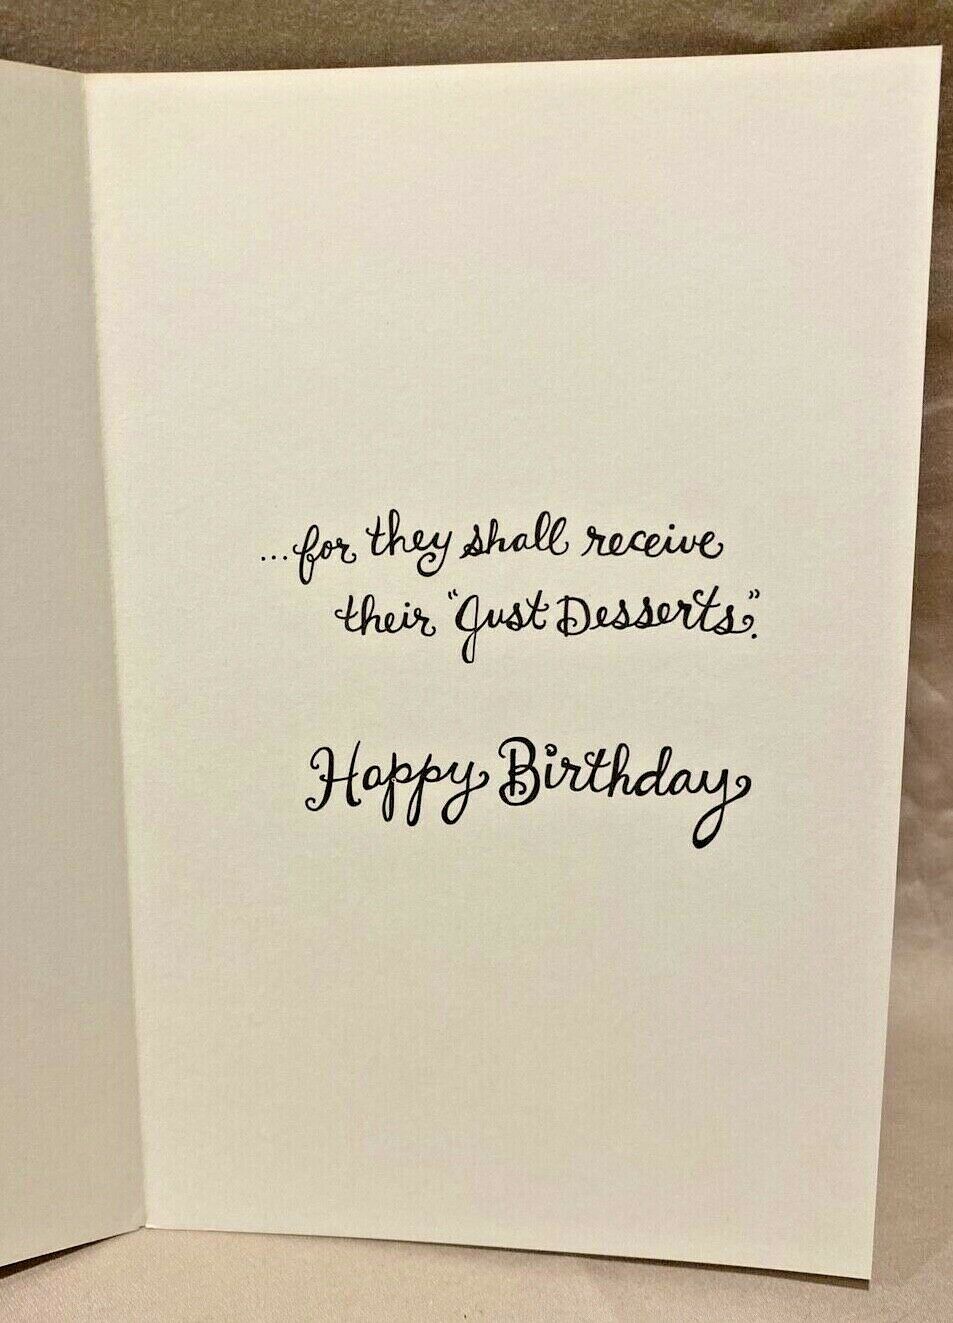 ...for they shall receive
their "Just Desserts".
Happy Birthday